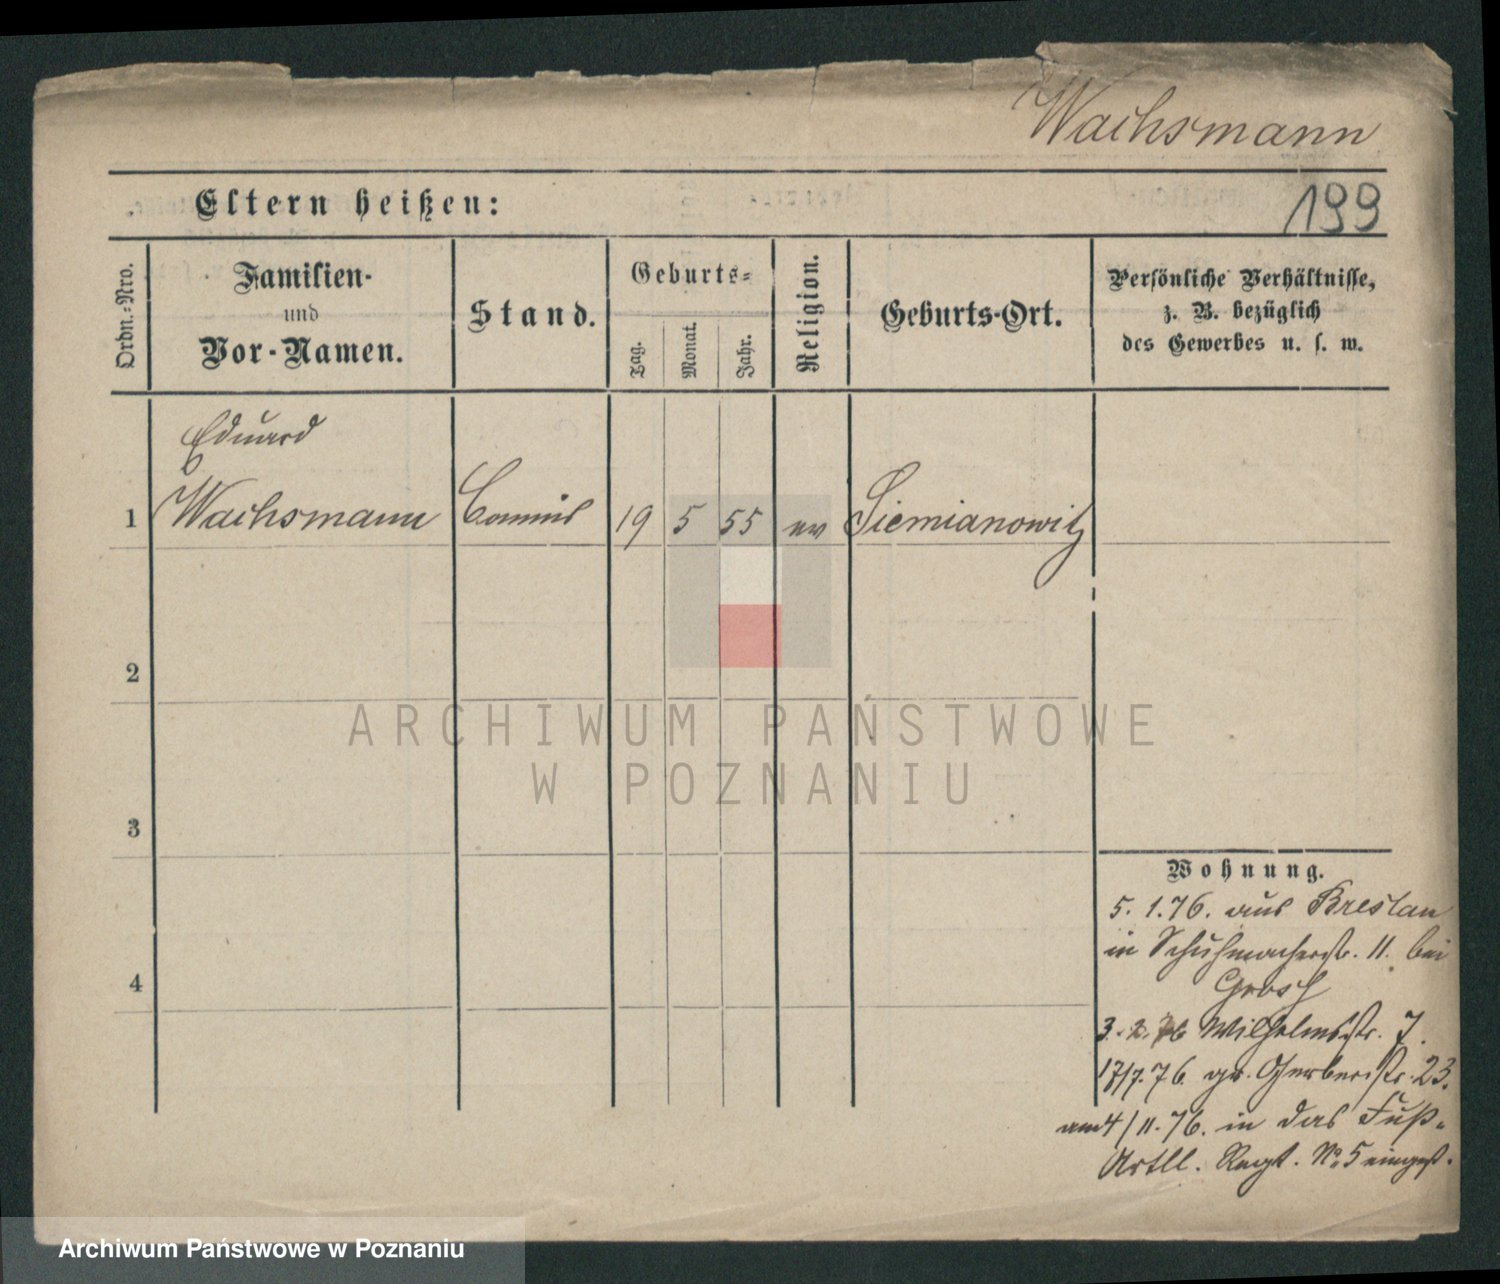 Wachsmann
Eltern heißen:
199
Ordn.-Nro.
Familien-
und
Vor-Namen.
Stand.
Geburts-
Tag.
Monat.
Jahr.
Religion.
Geburts-Ort.
Persönliche Verhältnisse,
z. B. bezüglich
des Gewerbes u. s. w.
Eduard
1 Wachsmann Commis 19 5 55 ev Siemianowitz
2
ARCHIWUM PAŃSTWOWE
W POZNANIU
3
Wohnung.
5. 1. 76. aus Breslau
in Schuhmacherstr. 11. bei
4
3. 2. 76 Wilhelmsstr. 7.
17/7. 76. gr. Gerberstr. 23.
am 4/11. 76. in das Fuß-
Artll. Regt. No. 5 eingest.
Archiwum Państwowe w Poznaniu